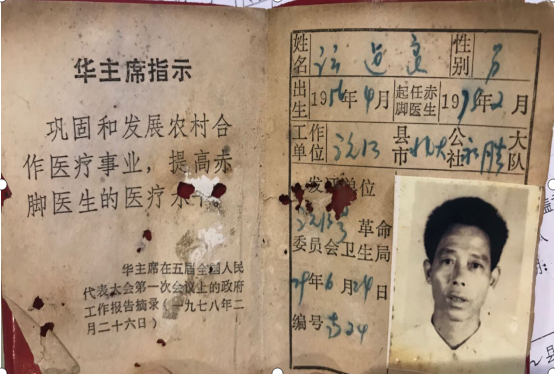 华主席指示
巩固和发展农村合
作医疗事业,提高赤
脚医生的医疗水平。
华主席在五届全国人民
代表大会第一次会议上的政府
工作报告摘录(一九七八年二
月二十六日)
姓名 道 性别 男
出生 19 年 月 起任赤脚医生 19 年2月
工作单位 沅江 县市 公社 永胜 大队
发证单位
沅江县 革命
委员会卫生局
年6月24日
编号 24
县